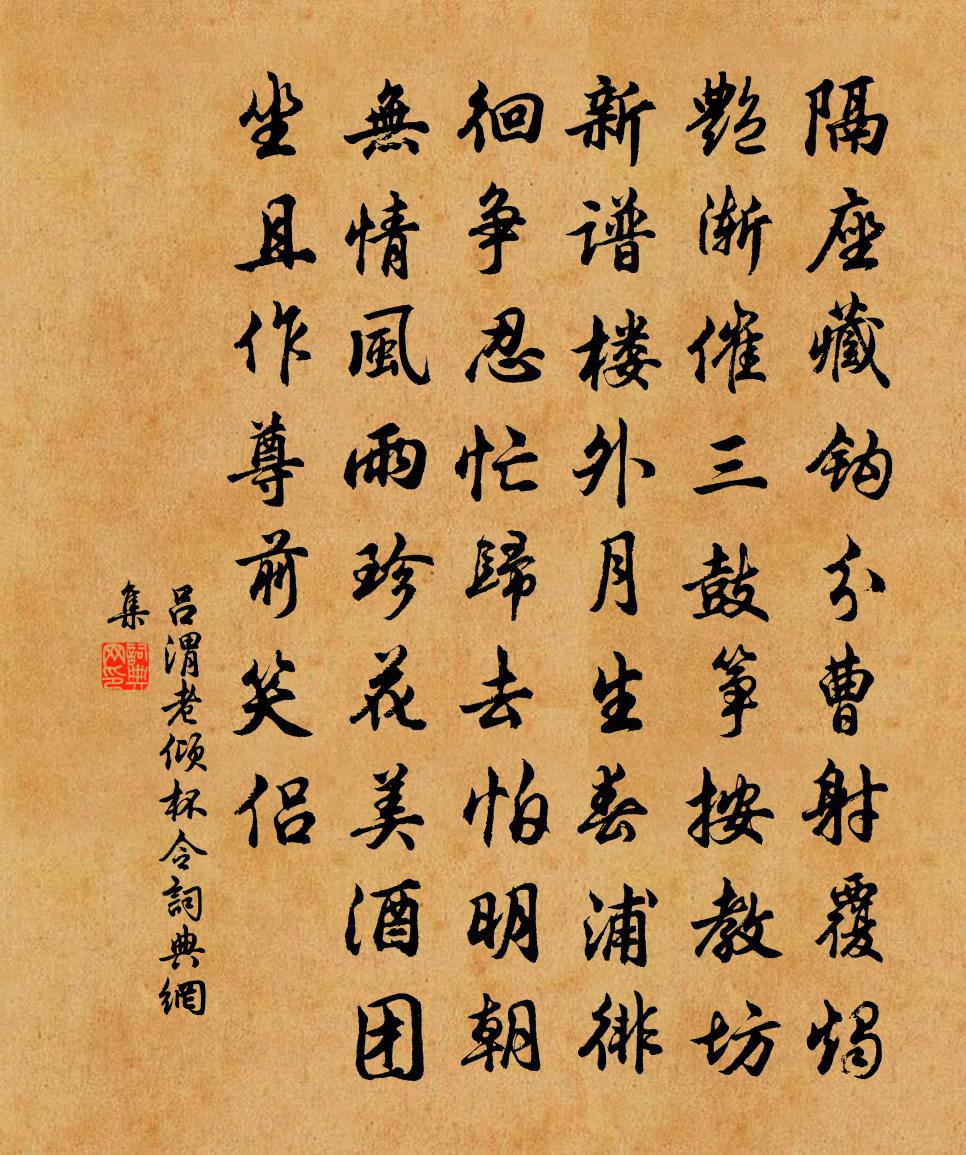 隔座藏钩分曹射覆烛
艷渐催三鼓筝按教坊
新谱楼外月生春浦徘
徊争忍忙歸去怕明朝
無情風雨珍花美酒团
坐且作尊前笑侣
吕渭老傾杯令詞典網
集
詞典
网印